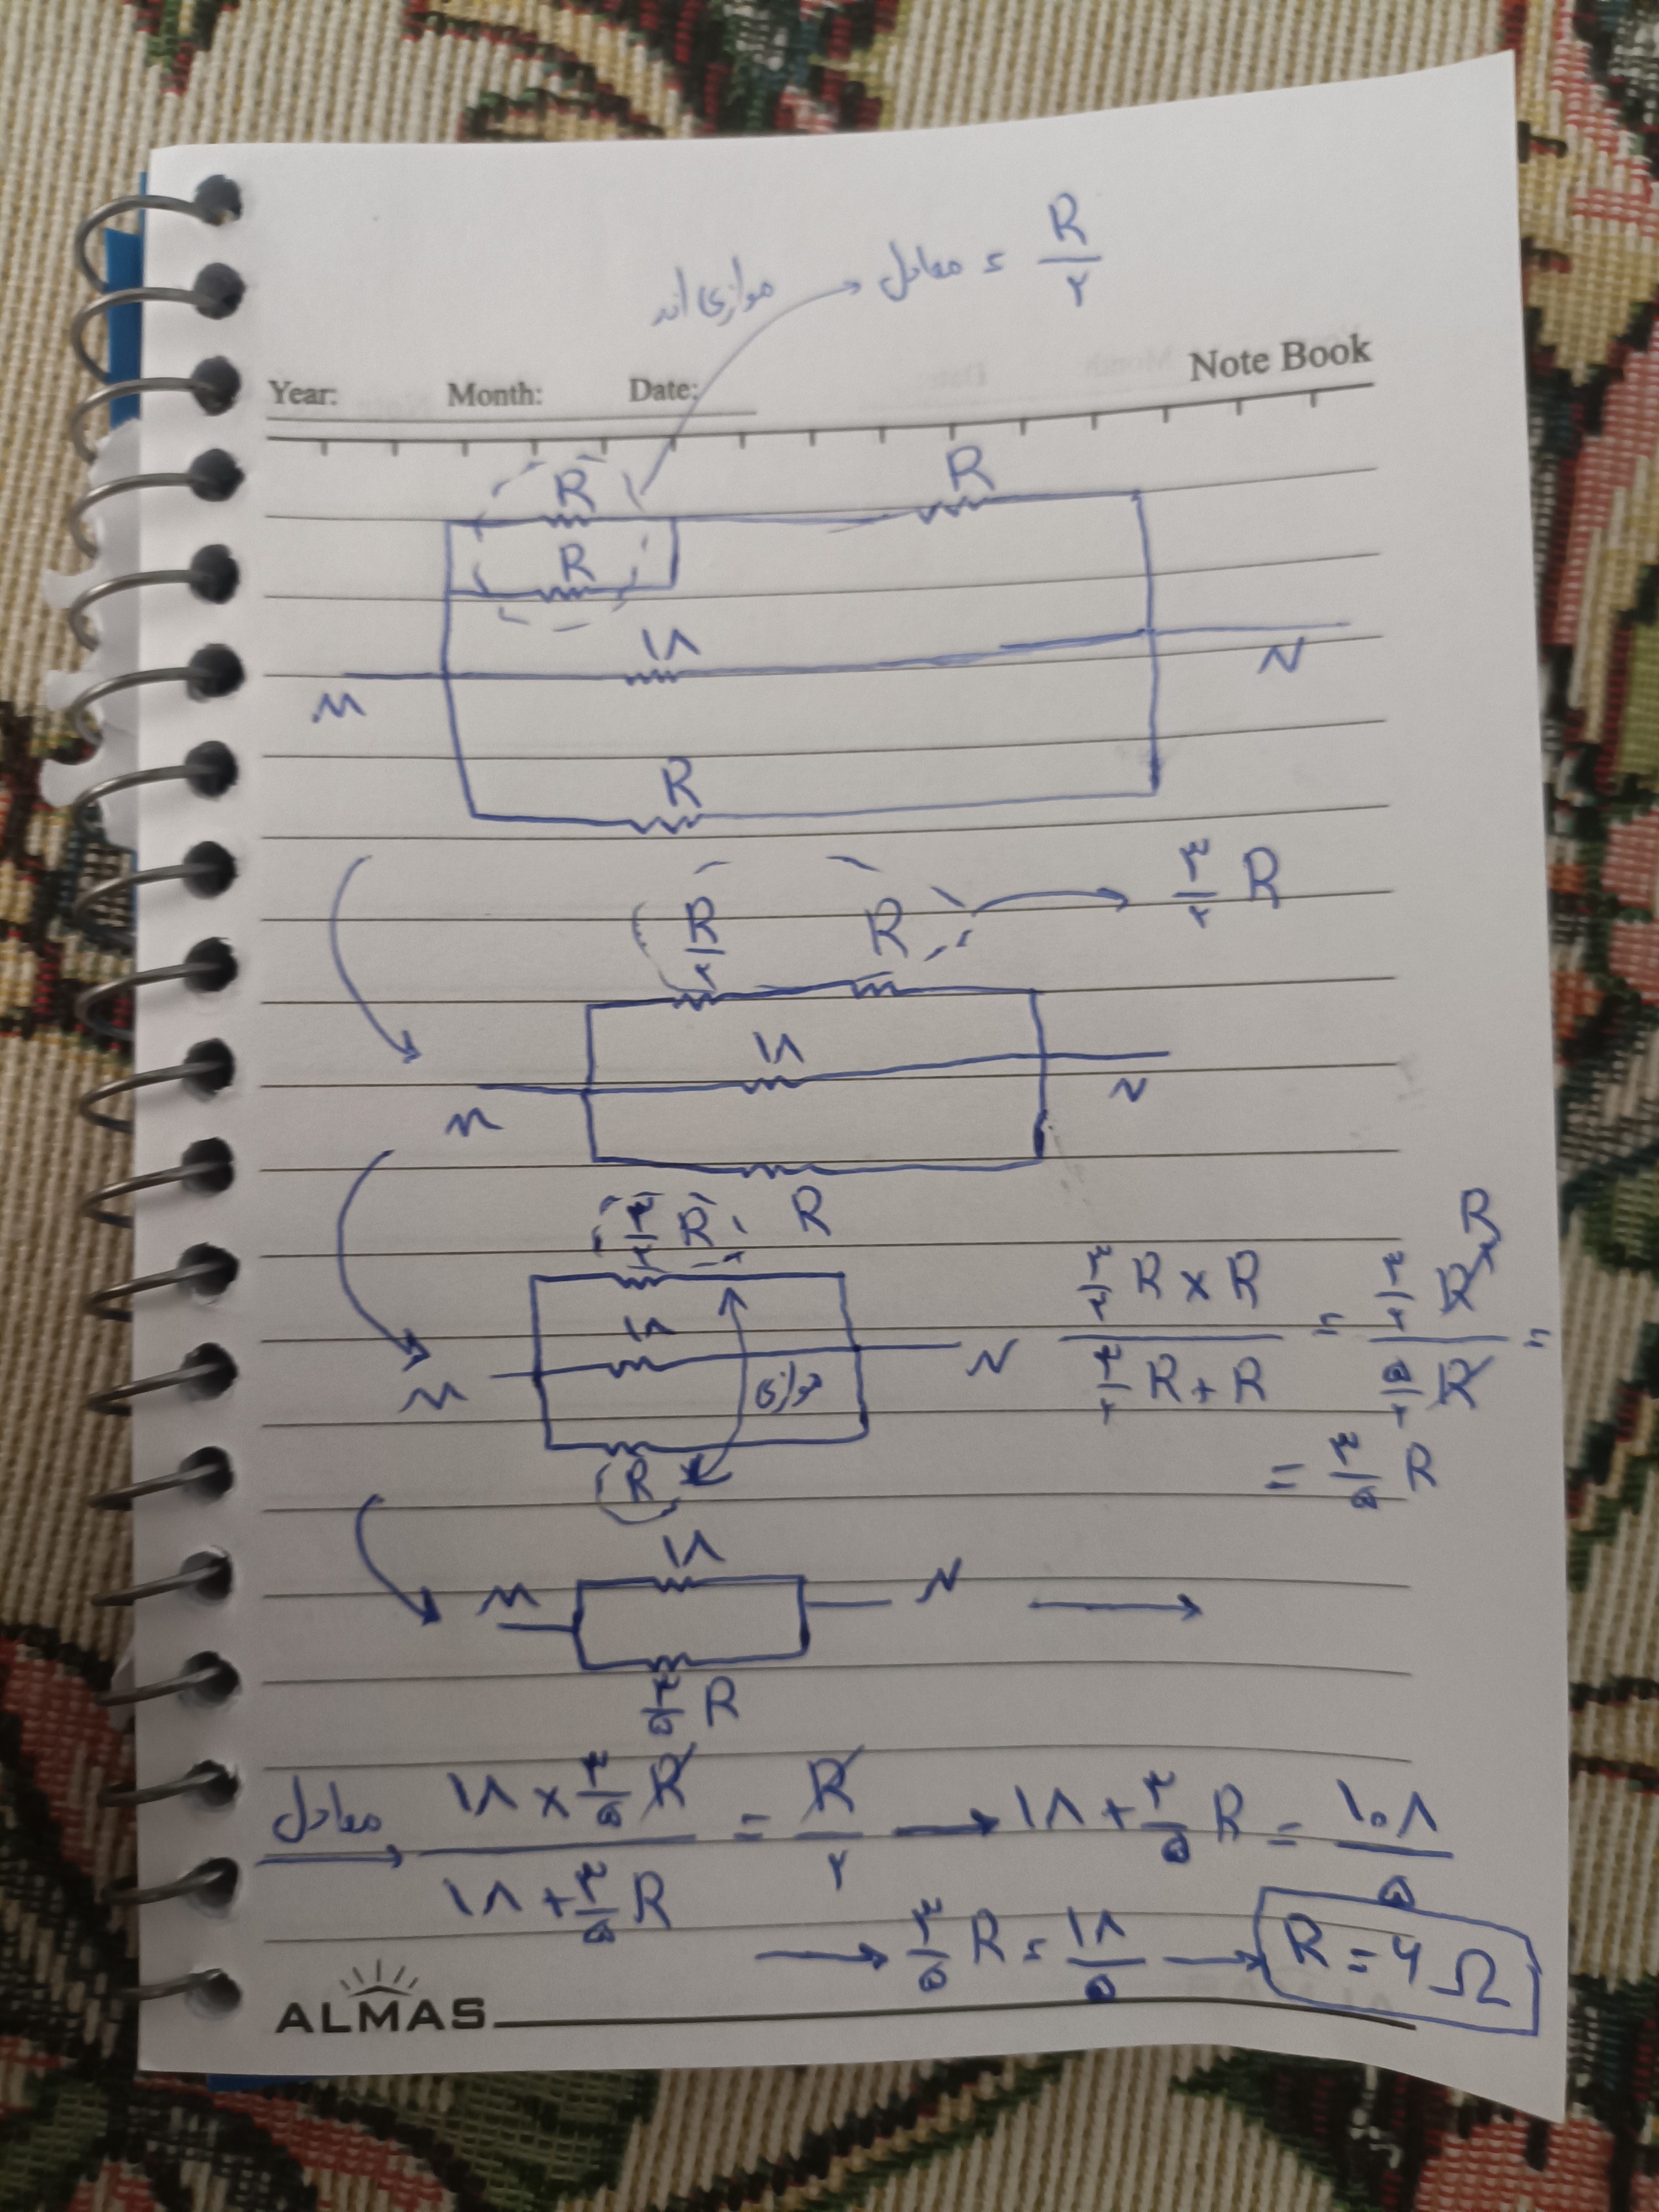 موازی اند → معادل = R/۲
Note Book
Year: Month: Date:
R R
R
۱۸
M N
R
R/۲ R → ۳/۲ R
۱۸
M N
R
۳/۲ R
۱۸
M N
موازی
R
(۳/۲ R × R)/(۳/۲ R + R) = (۳/۲ R × R)/(۵/۲ R) =
= ۳/۵ R
۱۸
M N →
۳/۵ R
معادل → (۱۸ × ۳/۵ R)/(۱۸ + ۳/۵ R) = R/۲ → ۱۸ + ۳/۵ R = ۱۰۸/۵
→ ۳/۵ R = ۱۸/۵ → R = ۶ Ω
ALMAS